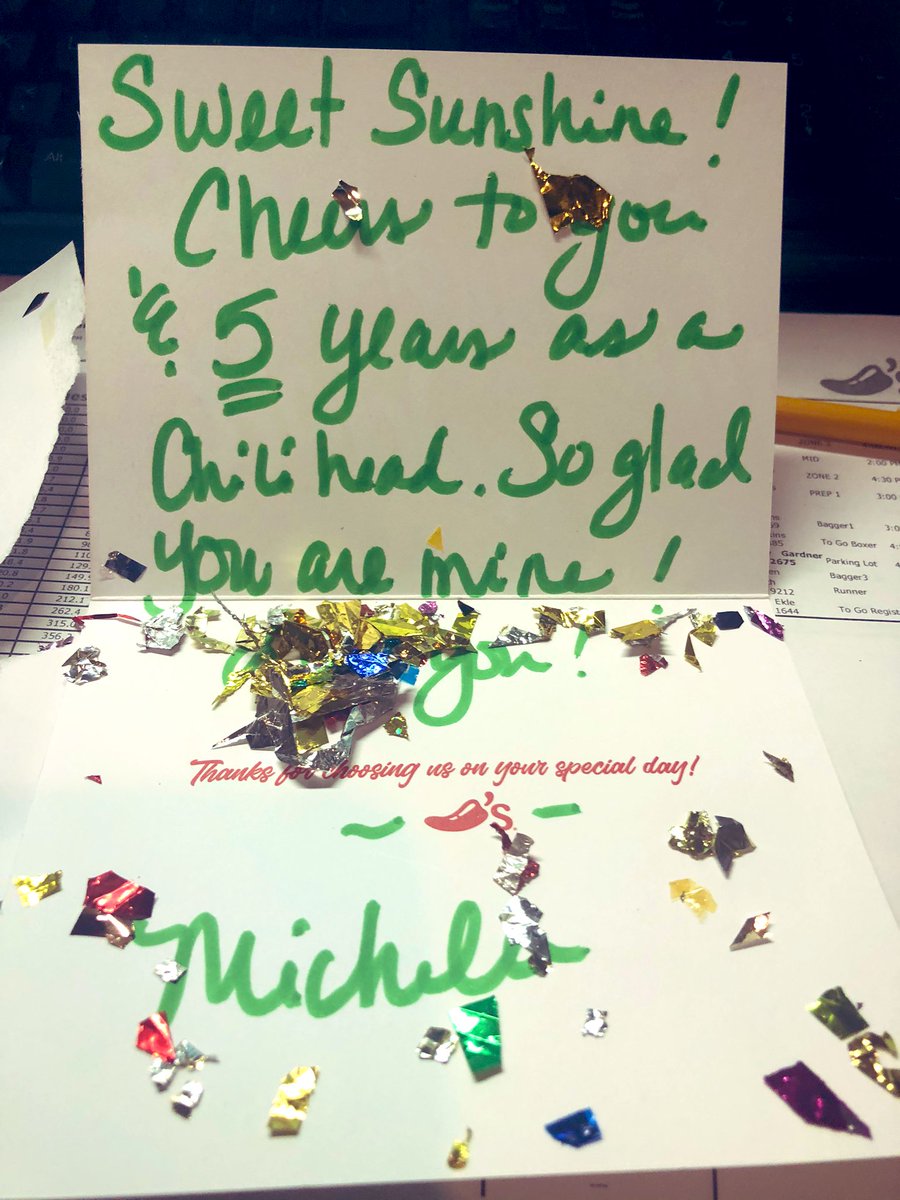 Sweet Sunshine!
Cheers to you
& 5 years as a
Chili head. So glad
you are mine!
you!
Thanks for choosing us on your special day!
's
Michelle
Alt
's
MID 2:00 P
ZONE 2 4:30 P
PREP 1 3:00
Bagger1 3:0
To Go Boxer 4:
Gardner
2675 Parking Lot 4
Bagger3
9212 Runner
Ekle
1644 To Go Regist
149.
180.1
212.1
262.4
315.0
356.